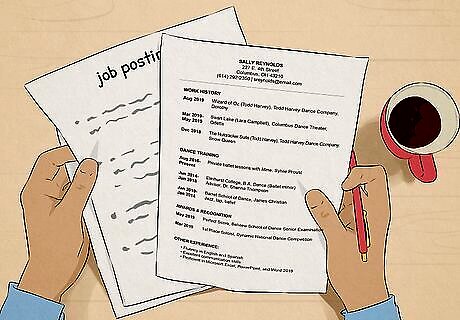 job postin
SALLY REYNOLDS
227 E. 4th Street
Columbus, OH 43210
(614) 292-2300 | sreynolds@email.com
WORK HISTORY
Aug 2019 Wizard of Oz (Todd Harvey), Todd Harvey Dance Company,
Dorothy
Mar 2019 -
May 2019 Swan Lake (Lara Campbell), Columbus Dance Theater,
Odette
Dec 2018 The Nutcracker Suite (Todd Harvey), Todd Harvey Dance Company
Snow Queen
DANCE TRAINING
Aug 2016-
Present Private ballet lessons with Mme. Sylvie Proulx
Jan 2014-
Jan 2018 Elmhurst College, B.A. Dance (Ballet minor)
Advisor, Dr. Shanna Thompson
Jan 2009-
Jan 2014 Barrel School of Dance, James Christian
Jazz, tap, ballet
AWARDS & RECOGNITION
May 2019 Perfect Score, School of Dance Senior Examination
Mar 2019 1st Place Soloist, Dynamic National Dance Competition
OTHER EXPERIENCE:
• Fluency in English and Spanish
• Excellent communication skills
• Proficient in Microsoft Excel, PowerPoint, and Word 2019